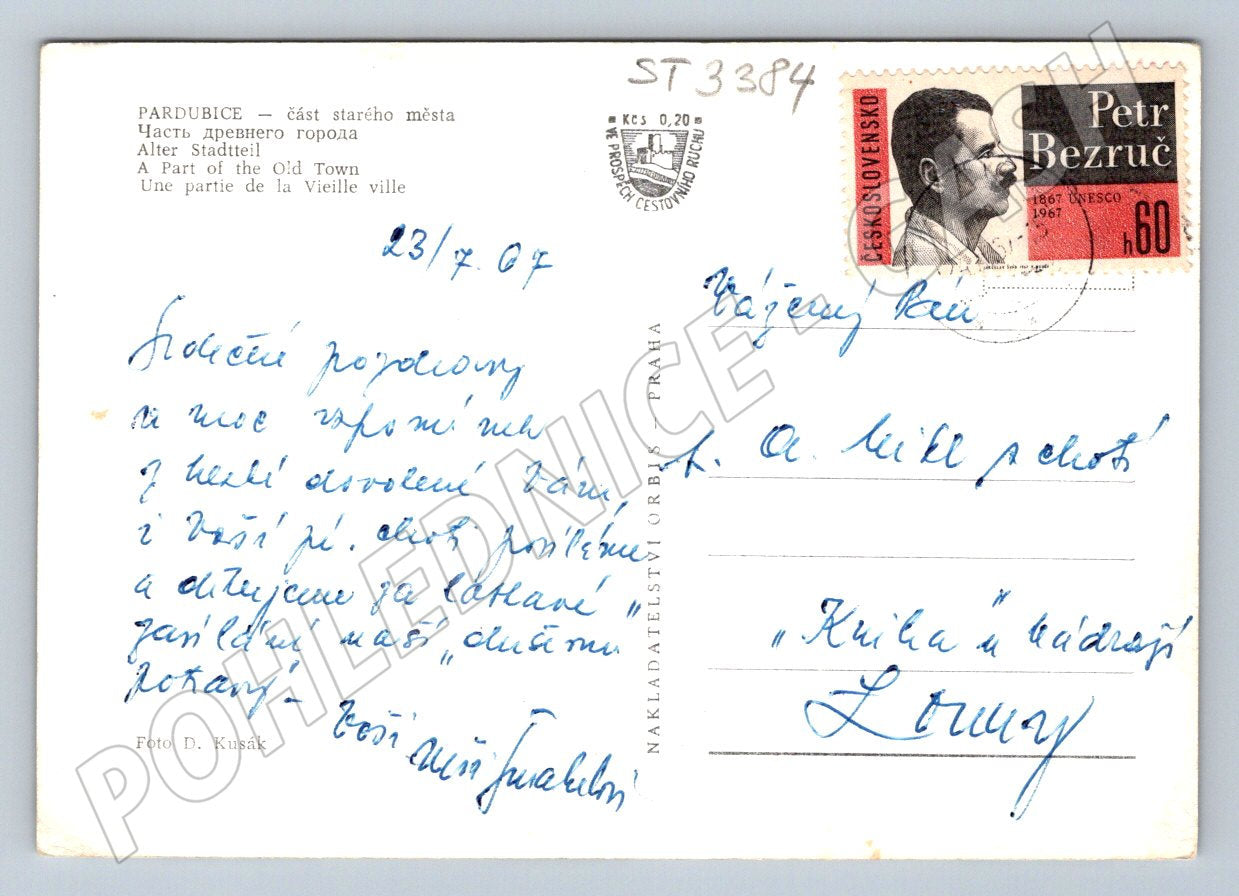 ST 3384
PARDUBICE — část starého města
Часть древнего города
Alter Stadtteil
A Part of the Old Town
Une partie de la Vieille ville
Kčs 0,20
VE PROSPĚCH CESTOVNÍHO RUCHU
ČESKOSLOVENSKO
Petr
Bezruč
1867 UNESCO
1967
h60
23/7. 67
Srdečné pozdravy
a moc vzpomínek
z hezké dovolené Vám,
i Vaší pí. choti posíláme
a děkujeme za laskavé
zasílání naší „duševní
potravy"
Vaši
Foto D. Kusák
NAKLADATELSTVÍ ORBIS — PRAHA
Vážený Pan
A. Mikl s chotí
„Kniha" u nádraží
Louny
POHLEDNICE.CASH